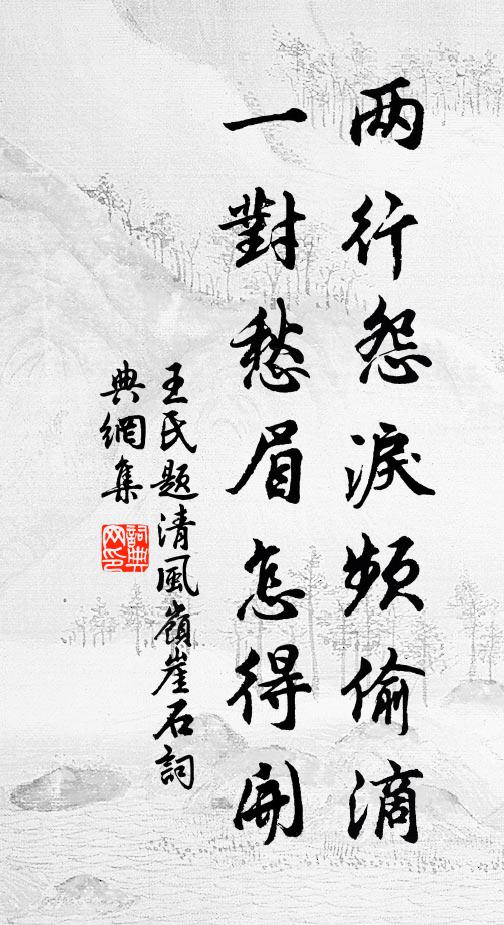 两行怨淚频偷滴
一對愁眉怎得開
王氏题清風嶺崖石詞
典網集
詞典网印